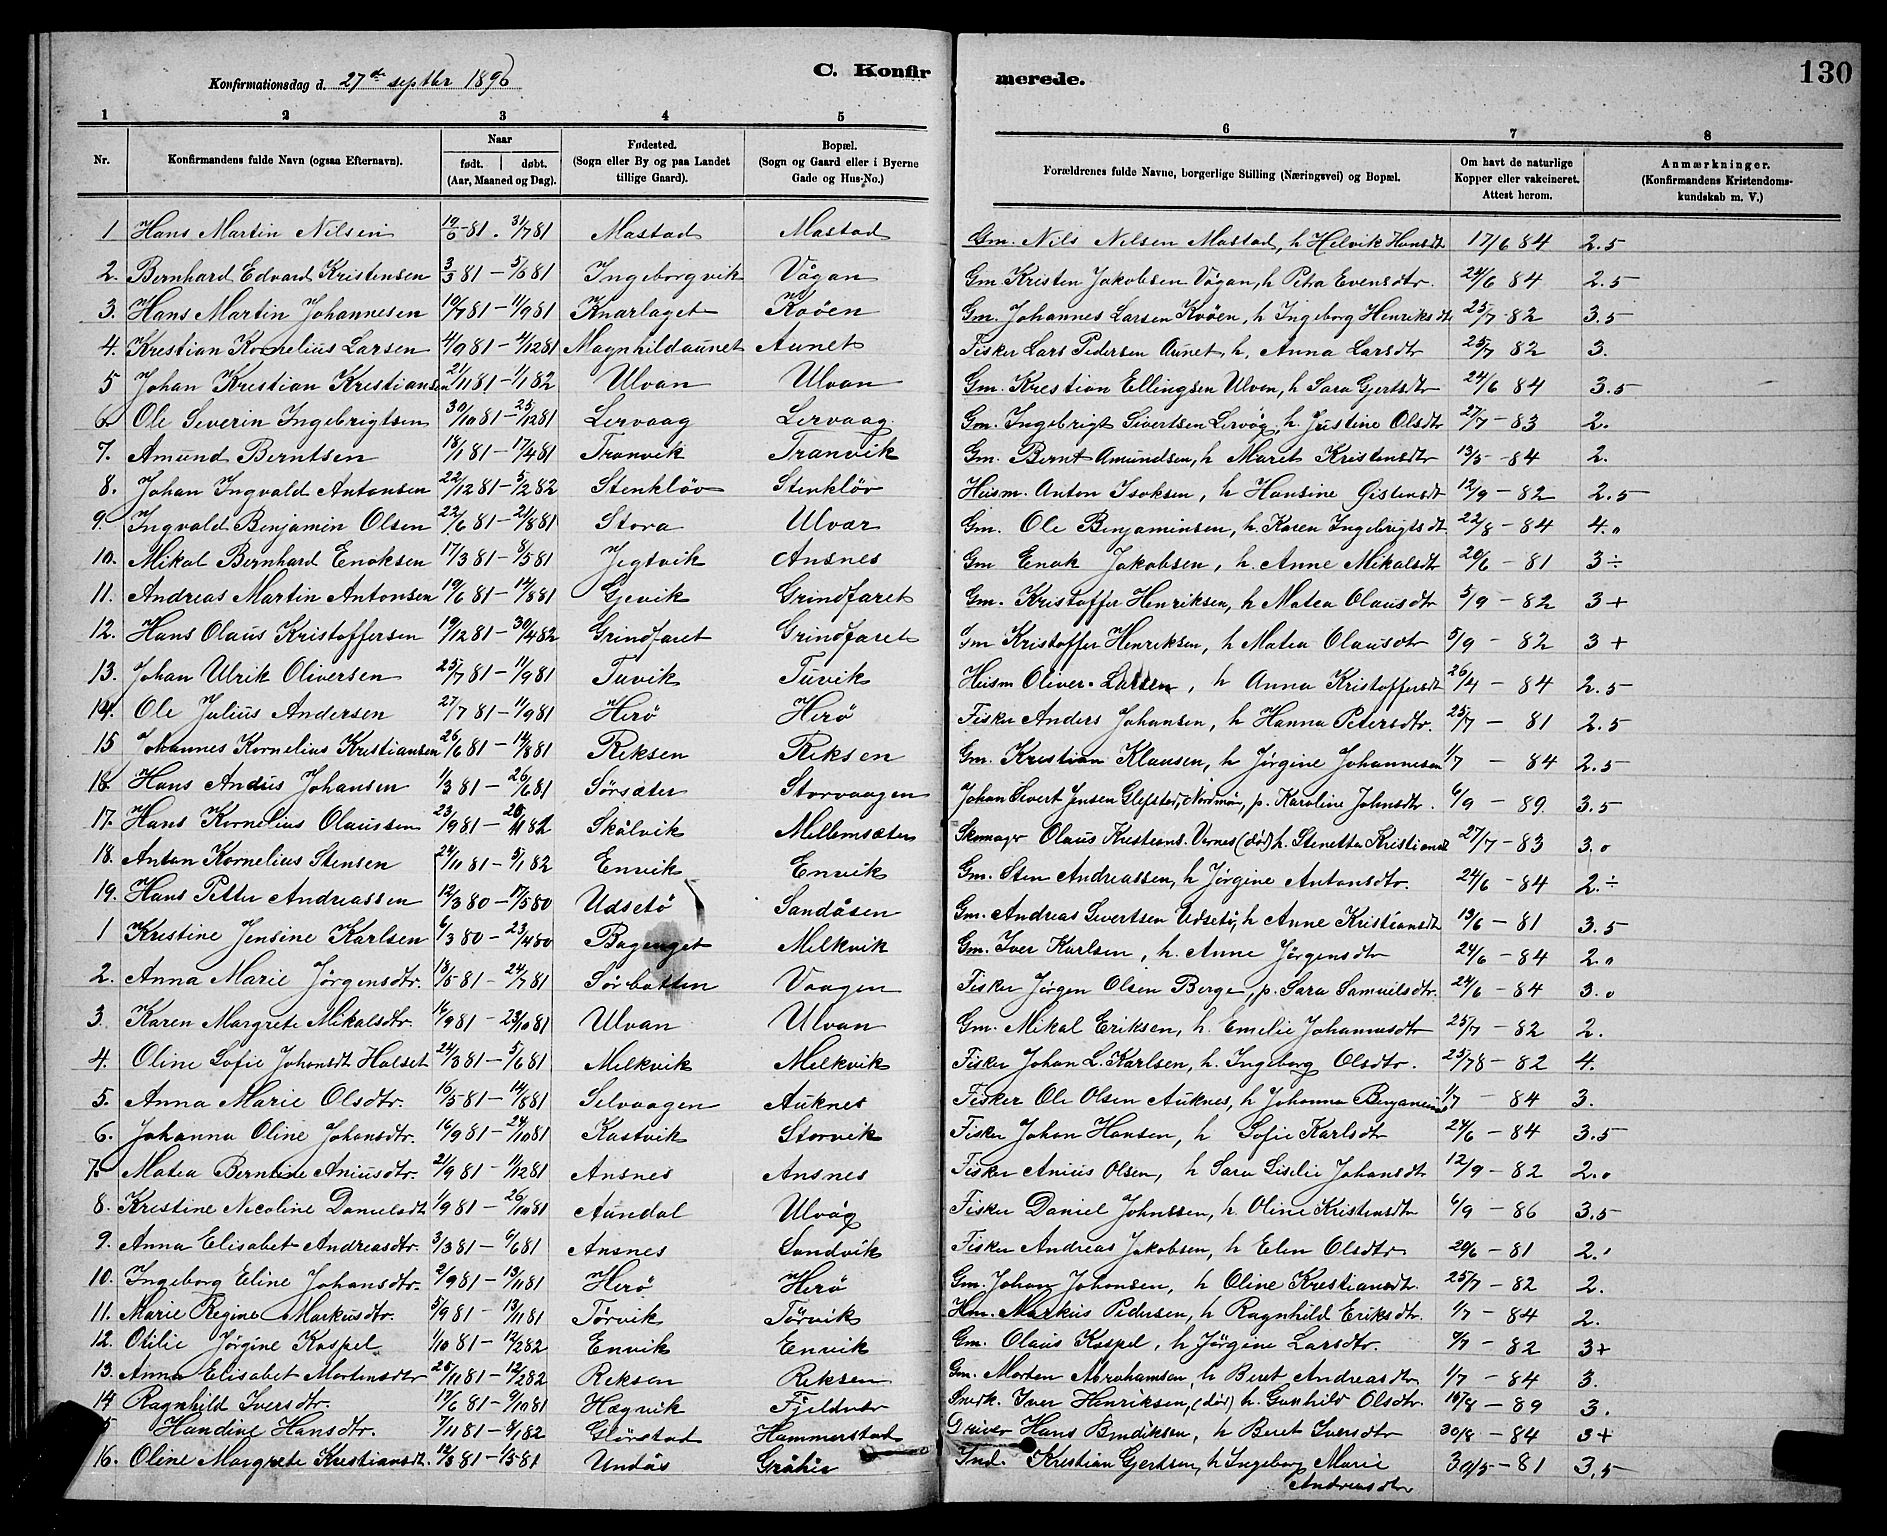 130
C. Konfirmerede.
Konfirmationsdag d. 27de septbr 1896
1 2 3 4 5 6 7 8
Nr. Konfirmandens fulde Navn (ogsaa Efternavn). Naar født. døbt. (Aar, Maaned og Dag). Fødested. (Sogn eller By og paa Landet tillige Gaard). Bopæl. (Sogn og Gaard eller i Byerne Gade og Hus-No.) Forældrenes fulde Navne, borgerlige Stilling (Næringsvei) og Bopæl. Om havt de naturlige Kopper eller vakcineret. Attest herom. Anmærkninger. (Konfirmandens Kristendomskundskab m. V.)
1 Hans Martin Nilsen 81. 31/7 81 Mastad Mastad Gm. Nils Nilsen Mastad, h Helvik Hansdt 17/6 84 2.5
2. Bernhard Edvard Kristensen 3/3 81 – Ingeborgvik Vågan Gm Kristen Jakobsen Vågan, h Petra Evensdtr. 24/6 84 2.5
3. Hans Martin Johannesen 19/7 81 – 11/9 81 Knarlaget Kvöen Gm. Johannes Larsen Kvöen, h Ingeborg Henriksdtr 25/7 - 82 3.5
4. Krestian Kornelius Larsen 4/9 81 – 4/12 81 Magnhildaunet Aunet Fisker Lars Pedersen Aunet, h. Anna Larsdtr 25/7 82 3.
5 Johan Krestian Kristiansen 21/11 81 – 1/1 82 Ulvan Ulvan Gm. Krestian Ellingsen Ulvan, h Sara Gjertsdtr 24/6 84 3.5
6. Ole Severin Ingebrigtsen 30/10 81 – 25/12 81 Lervaag Lervaag Gm. Ingebrigt Sivertsen Lervåg, h. Justine Olsdtr 27/7 – 83 2.
7. Amund Berntsen 18/1 81 – 17/4 81 Tranvik Tranvik Gm. Bernt Amundsen, h Maret Kristensdtr 13/5 – 84 2.
8. Johan Ingvald Antonsen 22/12 81 – 5/2 82 Stenklöv Stenklöv Husm. Anton Isaksen, h Hansine 12/9 – 82 2.5
9. Ingvald Benjamin Olsen 22/6 81 – 21/8 81 Stora Ulvær Gm. Ole Benjaminsen, h. Karen Ingebrigtsdt. 22/8 – 84 4.0
10. Mikal Bernhard Enoksen 17/3 81 – 8/5 81 Jegtvik Ansnes Gm Enok Jakobsen, h. Anne Mikalsdt 20/6 – 81 3÷
11. Andreas Martin Antonsen 19/6 81 – 14/8 81 Gjevik Grindfaret Gm. Kristoffer Henriksen, h Matea Olausdtr 5/9 – 82 3+
12. Hans Olaus Kristoffersen 19/12 81 – 30/4 82 Grindfaret Grindfaret Gm Kristoffer Henriksen, h Matea Olausdtr 5/9 – 82 3+
13. Johan Ulrik Oliversen 25/7 81 – 11/9 81 Tuvik Tuvik Husm Oliver Larsen, h Anna Kristoffersdt 26/4 – 84 2.5
14. Ole Julius Andersen 27/7 81 – 11/9 81 Herö Herö Fisker Anders Johansen, h Hanna Petersdtr. 25/7 – 81 2.5
15 Johannes Kornelius Kristiansen 26/6 81 – 14/8 81 Reksen Reksen Gm. Kristian Klausen, h Jörgine Johannesen 1/7 – 84 2.5
16 Hans Andus Johansen 1/3 81 – 26/6 81 Sörsæter Storvaagen Johan Sivert Jensen Glefstad, Nordmör, p. Karoline Johnsdtr. 6/9 – 89. 3.5
17. Hans Kornelius Olaussen 23/9 81 – Skålvik Mellemsæter Skomager Olaus Krestians. Vernes (död) h. Stenetta Kristiansdt 27/7 – 83 3.0
18. Anton Kornelius Stensen 24/11 81 – 5/1 82 Envik Envik Gm. Sten Andreassen, h Jörgine Antonsdtr. 24/6 – 84 2.÷
19. Hans Petter Andreassen 12/3 80 – 17/5 80 Udsetö Sandåsen Gm. Andreas Sivertsen Udsetö, h Anne Kristiansdt 13/6 – 81 3.5
1 Kristine Jensine Karlsen 6/3 80 – 23/4 80 Bagenget Melkvik Gm. Iver Karlsen, h. Anne Jörgensdtr 24/6 – 84 2.0
2. Anna Marie Jörgensdtr. 18/5 81 – 24/7 81 Sörbotten Vaagen Fisker Jörgen Olsen Berge, p. Sara Samuelsdtr. 24/6 – 84 3.0
3. Karen Margrete Mikalsdtr. 16/9 81 – 23/10 81 Ulvan Ulvan Gm. Mikal Eriksen, h. Emelie Johannesdtr 25/7 – 82 2.
4. Oline Sofie Johansdt Halset 24/3 81 – 5/6 81 Melkvik Melkvik Fisker Johan L. Karlsen, h. Ingeborg Olsdtr. 25/78 – 82 4.
5. Anna Marie Olsdtr. 16/5 81 – 14/8 81 Selvaagen Auknes Fisker Ole Olsen Auknes, h Johanna 1/7 – 84 3.
6. Johanna Oline Johansdtr. 16/9 81 – 24/10 81 Kastvik Storvik Fisker Johan Hansen, h Sofie Karlsdtr 24/6 – 84 3.5
7. Matea Berntine Aniusdtr. 21/9 81 – 11/12 81 Ansnes Ansnes Fisker Anius Olsen, h Sara Giselie Johansdt 12/9 – 82 2.0
8. Kristine Nicoline Danielsdt 1/9 81 – 26/10 81 Aundal Ulvåg Fisker Daniel Johnssen, h Oline Kristensdtr 6/9 – 86 3.5
9. Anna Elisabet Andreasdtr. 3/3 81 – 6/6 81 Ansnes Sandvik Fisker Andreas Jakobsen, h Elen Olsdtr 20/6 – 81 2.
10. Ingeborg Eline Johansdtr. 2/9 81 – 13/11 81 Herö Herö Gm. Johan Johansen, h Oline Krestiansdt. 25/7 – 82 2.
11. Marie Regine Markusdtr. 5/9 81 – 13/11 81 Törvik Törvik Hm. Markus Pedersen, h Ragnhild Eriksdtr. 1/7 – 84 2.
12. Otilie Jörgine Kaspel 1/10 81 – 12/2 82 Envik Envik Gm. Olaus Kaspel, h Jörgine Larsdtr. – 82 3+
13. Anna Elisabet Mortensdtr 20/11 81 – 12/2 82 Reksen Reksen Gm. Morten Abrahamsen, h Beret Andreasdtr 1/7 – 84 3.
14 Ragnhild Iversdtr. 17/6 81 – 9/10 81 Hægvik Fjeldvær Smedk. Iver Henriksen, (död) h. Gunhild Olsdtr. – 89 3.
5 Handine Hansdtr. 7/11 81 – 8/1 82 Glörstad Hammerstad Driver Hans Bendiksen, h Beret Iversdtr 30/8 – 84 3+
16. Oline Margrete Krestiansdt. 81 – 1/5 81 Undås Ind. Krestian Gjertsen, h Ingeborg Marie 30/5 – 81 3.5
Andreasdtr